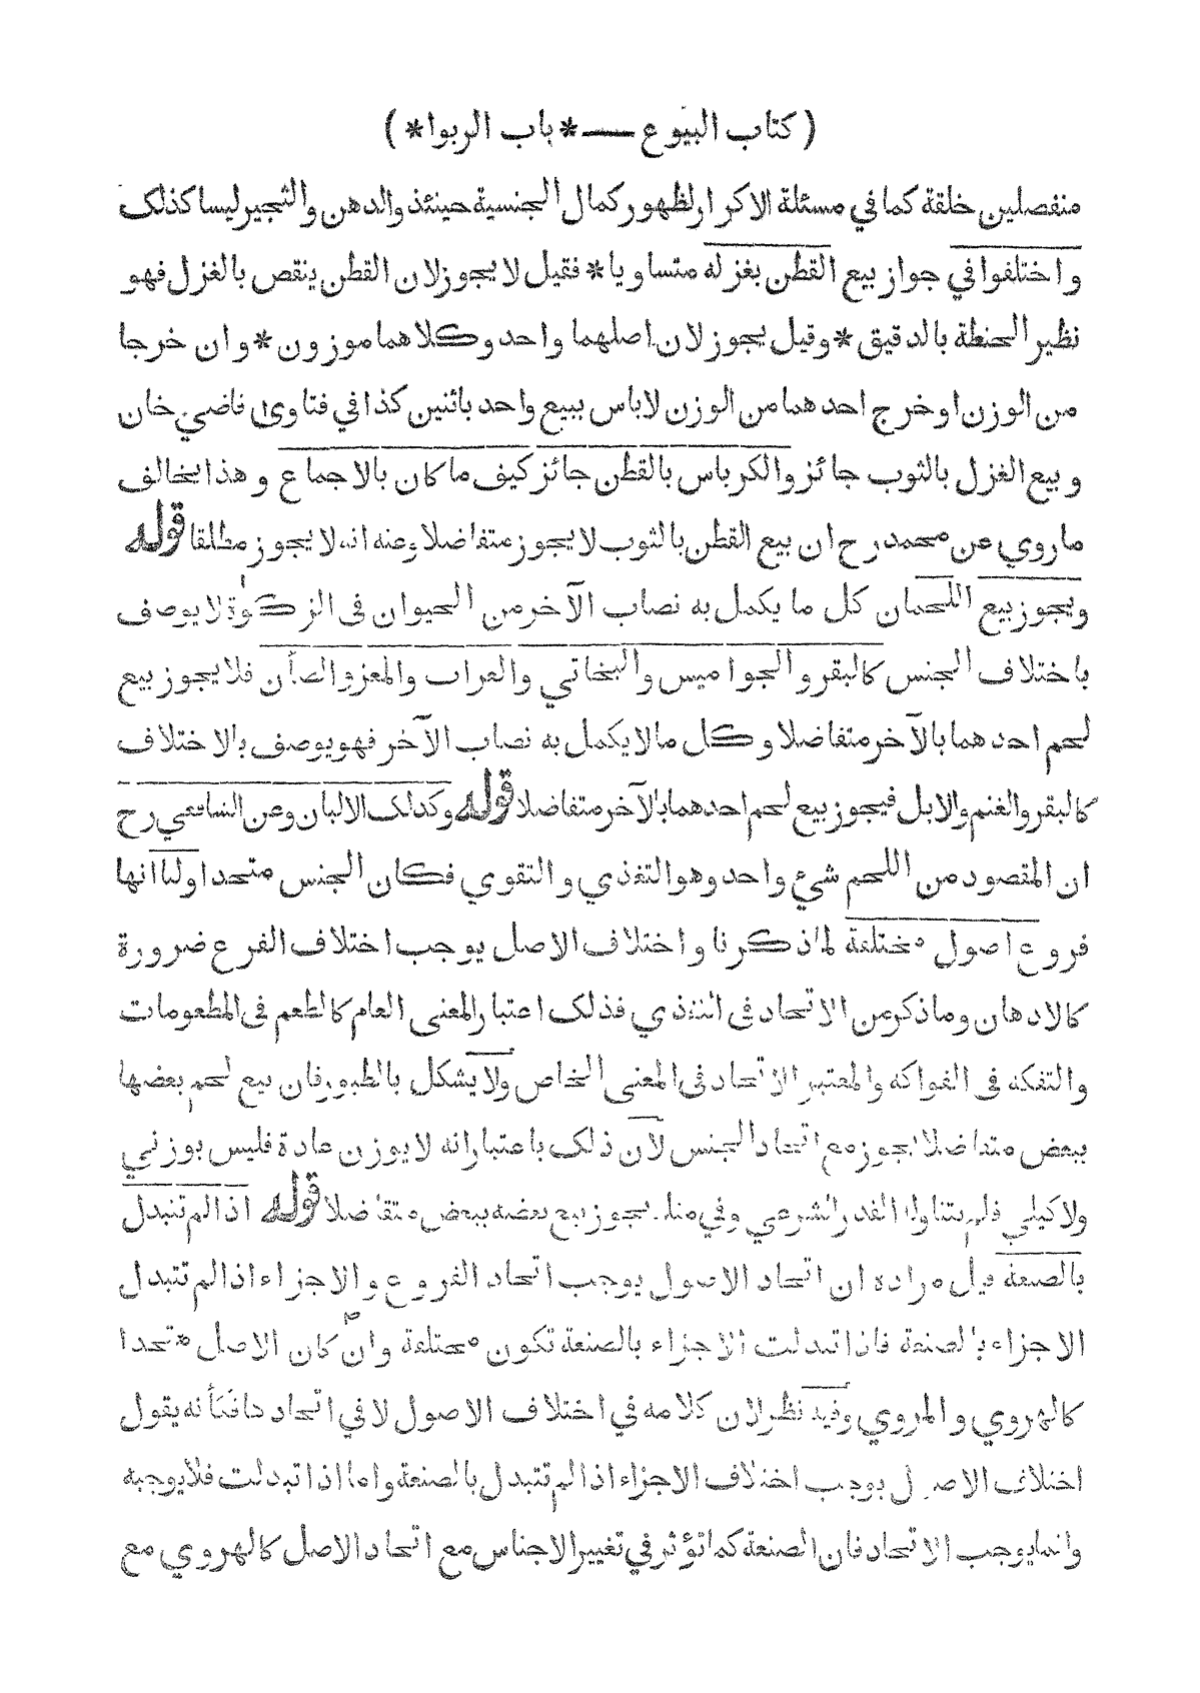 ( كتاب البيوع — * باب الربوا * )
منفصلين خلقة كما في مسئلة الاكرار لظهور كمال الجنسية حينئذ والدهن والثجير ليسا كذلك
واختلفوا في جواز بيع القطن بغزله متساويا * فقيل لا يجوز لان القطن ينقص بالغزل فهو
نظير الحنطة بالدقيق * وقيل يجوز لان اصلهما واحد وكلاهما موزون * وان خرجا
من الوزن او خرج احدهما من الوزن لاباس ببيع واحد باثنين كذا في فتاوى قاضي خان
وبيع الغزل بالثوب جائز والكرباس بالقطن جائز كيف ما كان بالاجماع وهذا يخالف
ماروي عن محمد رح ان بيع القطن بالثوب لا يجوز متفاضلا وعنه انه لا يجوز مطلقا قوله
ويجوز بيع اللحمان كل ما يكمل به نصاب الآخر من الحيوان فى الزكوة لا يوصف
باختلاف الجنس كالبقر والجواميس والبخاتي والعراب والمعز والضأن فلا يجوز بيع
لحم احدهما بالآخر متفاضلا وكل مالا يكمل به نصاب الآخر فهو يوصف بالاختلاف
كالبقر والغنم والابل فيجوز بيع لحم احدهما بالآخر متفاضلا قوله وكذلك الالبان وعن الشافعي رح
ان المقصود من اللحم شيء واحد وهو التغذي والتقوي فكان الجنس متحدا ولنا انها
فروع اصول مختلفة لما ذكرنا واختلاف الاصل يوجب اختلاف الفرع ضرورة
كالادهان وماذكر من الاتحاد فى التغذي فذلك اعتبار المعنى العام كالطعم فى المطعومات
والتفكه فى الفواكه والمعتبر الاتحاد فى المعنى الخاص ولا يشكل بالطيور فان بيع لحم بعضها
ببعض متفاضلا يجوز مع اتحاد الجنس لان ذلك باعتبار انه لا يوزن عادة فليس بوزني
ولا كيلي فلم يتناوله القدر الشرعي وفي مثله يجوز بيع بعضه ببعض متفاضلا قوله اذا لم تتبدل
بالصنعة قيل مراده ان اتحاد الاصول يوجب اتحاد الفروع والاجزاء اذا لم تتبدل
الاجزاء بالصنعة فاذا تبدلت الاجزاء بالصنعة تكون مختلفة وان كان الاصل متحدا
كالهروي والمروي وفيه نظر لان كلامه في اختلاف الاصول لا في اتحادها فكأنه يقول
اختلاف الاصول يوجب اختلاف الاجزاء اذا لم تتبدل بالصنعة واما اذا تبدلت فلا يوجبه
وانما يوجب الاتحاد فان الصنعة كما تؤثر في تغيير الاجناس مع اتحاد الاصل كالهروي مع